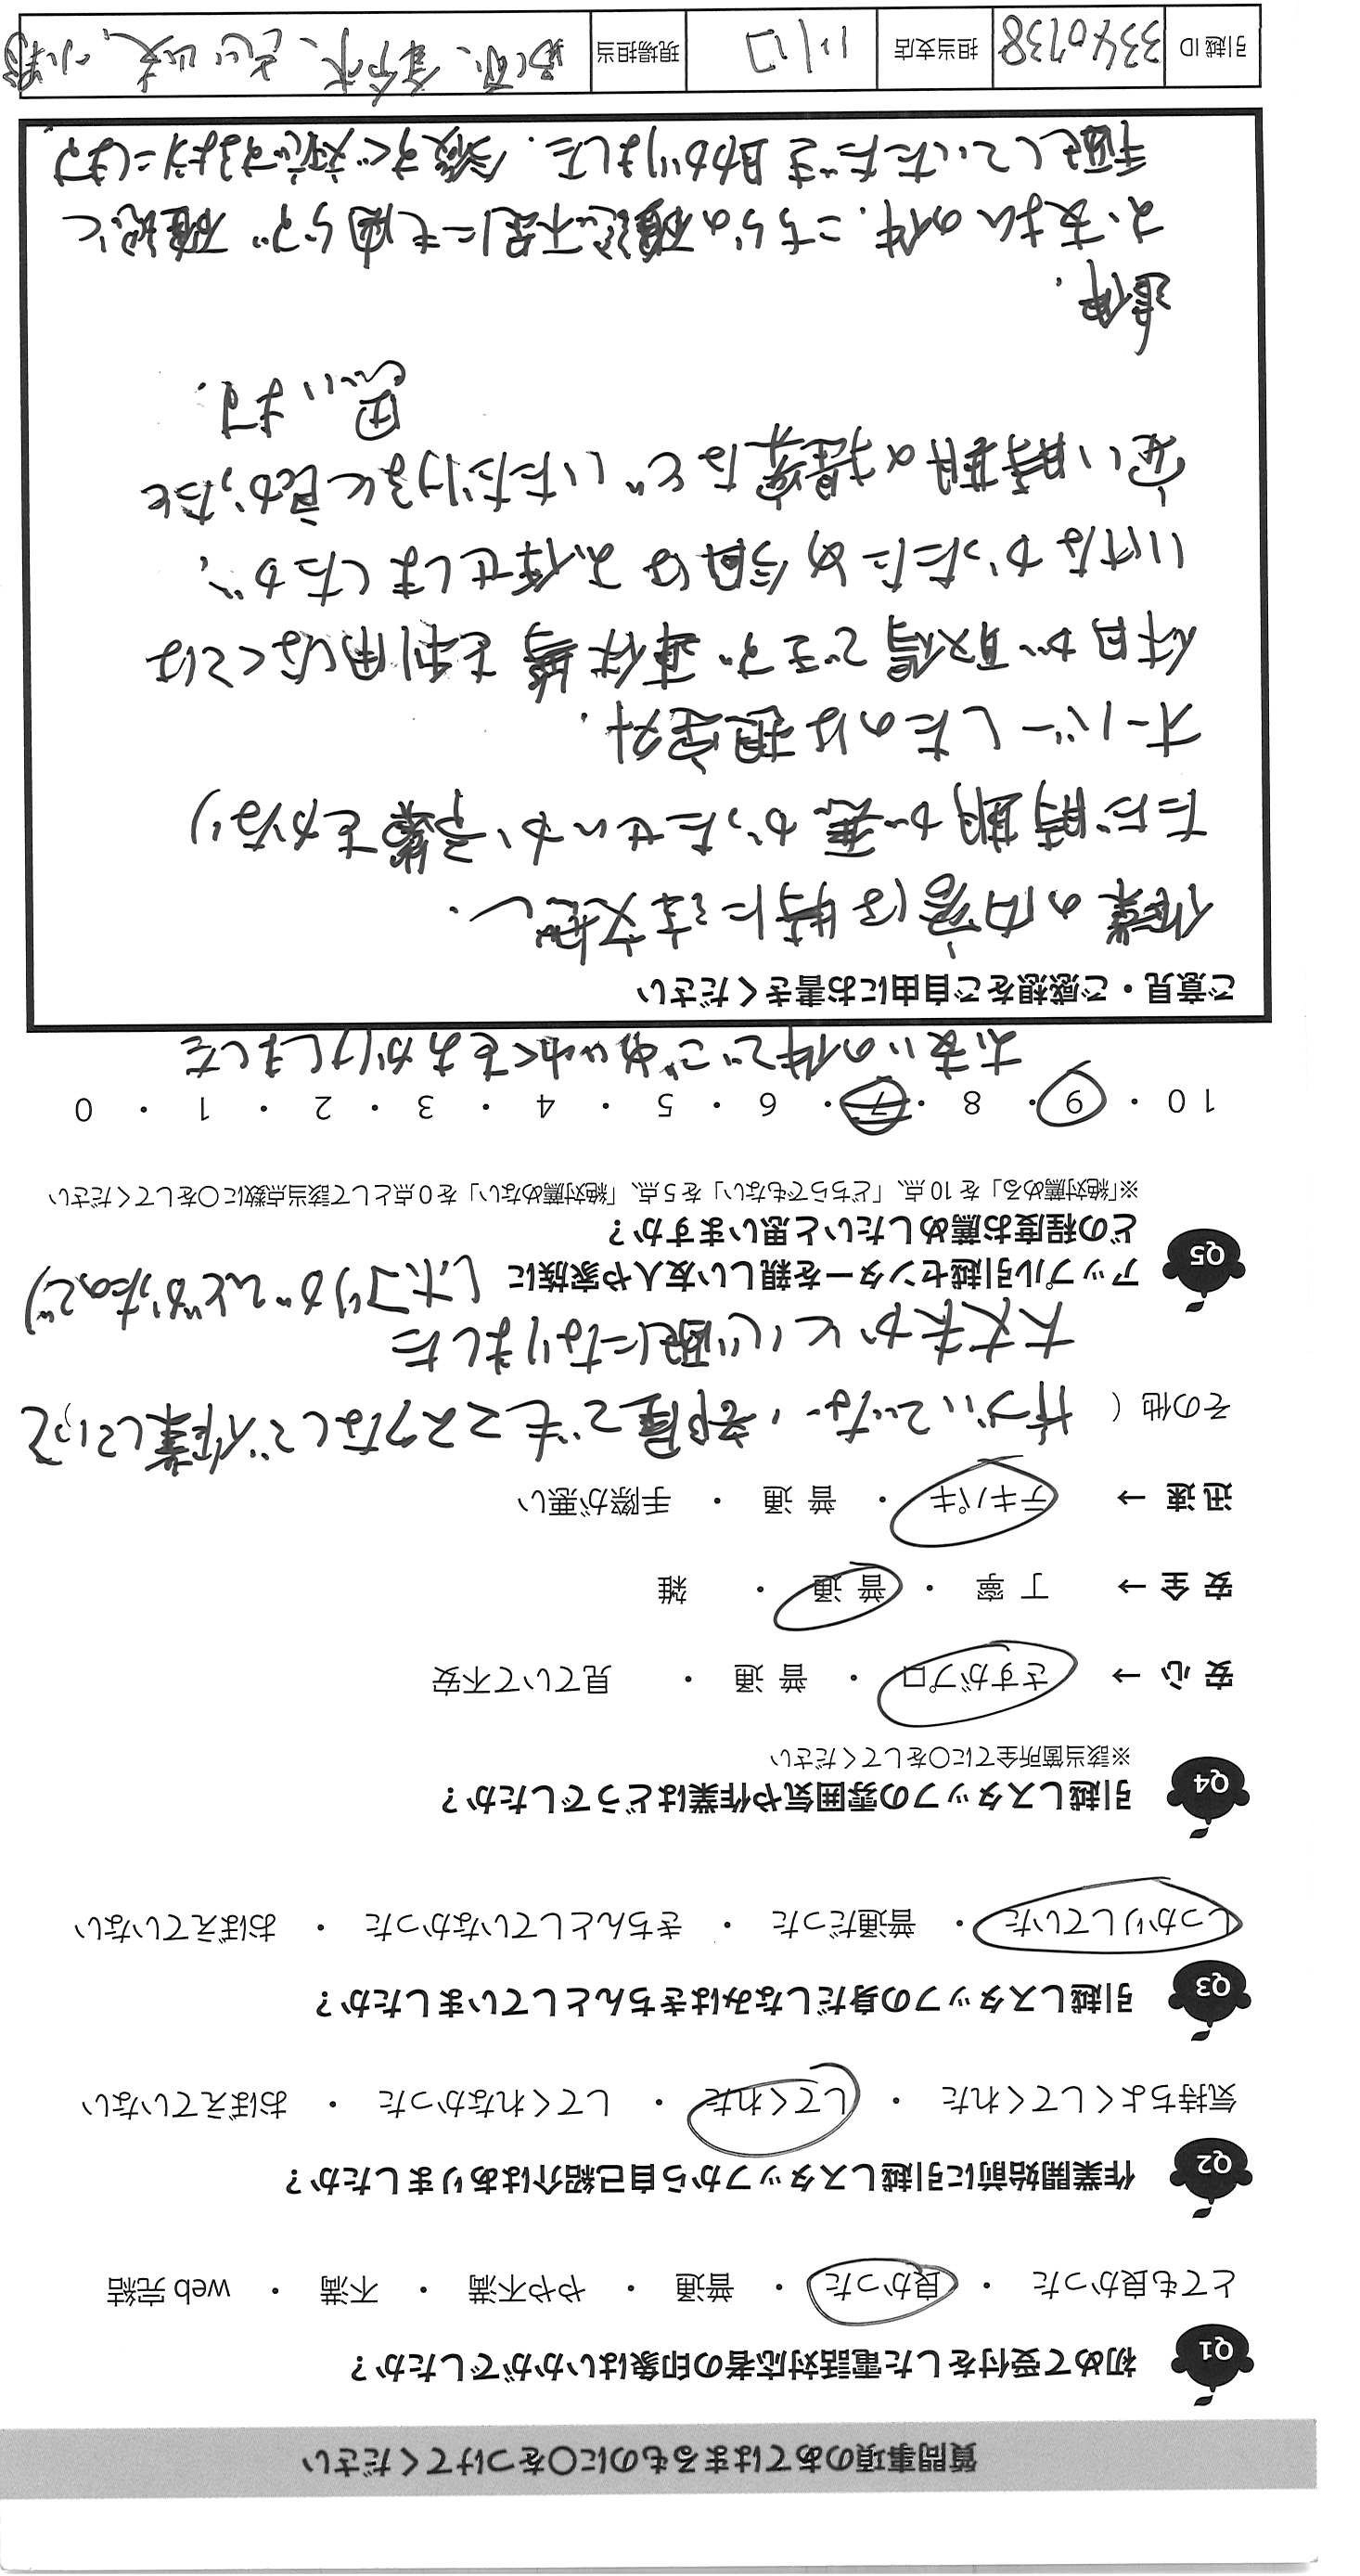 質問事項のあてはまるものに○をつけてください
Q1 初めて受付をした電話対応者の印象はいかがでしたか？
とても良かった ・ 良かった ・ 普通 ・ やや不満 ・ 不満 ・ web 完結
Q2 作業開始前に引越しスタッフから自己紹介はありましたか？
気持ちよくしてくれた ・ してくれた ・ してくれなかった ・ おぼえていない
Q3 引越しスタッフの身だしなみはきちんとしていましたか？
しっかりしていた ・ 普通だった ・ きちんとしていなかった ・ おぼえていない
Q4 引越しスタッフの雰囲気や作業はどうでしたか？
※該当箇所全てに○をしてください
安 心 → さすがプロ ・ 普 通 ・ 見ていて不安
安 全 → 丁 寧 ・ 普 通 ・ 雑
迅 速 → テキパキ ・ 普 通 ・ 手際が悪い
その他 （ 片づいてない部屋でもマスクなしで作業してて
大丈夫かと心配になりました
(ホコリがひどかったので)
Q5 アップル引越センターを親しい友人や家族に
どの程度お薦めしたいと思いますか？
※「絶対薦める」を 10 点、「どちらでもない」を 5 点、「絶対薦めない」を 0 点として該当点数に○をしてください
10 ・ 9 ・ 8 ・ 7 ・ 6 ・ 5 ・ 4 ・ 3 ・ 2 ・ 1 ・ 0
お支払の件でごめいわくをおかけしました
ご意見・ご感想をご自由にお書きください
作業の内容は特に注文無し.
ただ時期が悪かったせいか予算をかなり
オーバーしたのは想定外.
休日が取得できず連休等を利用しなくては
いけなかったため今回はお任せしましたが、
安い時期の提案などいただけると良かったと
思います.
追伸.
お支払の件. こちらの確認不足にも拘らず確認と
手配をしていただき助かりました. 今後すぐ対応するようにします
引越 ID 3340738 担当支店 川口 現場担当